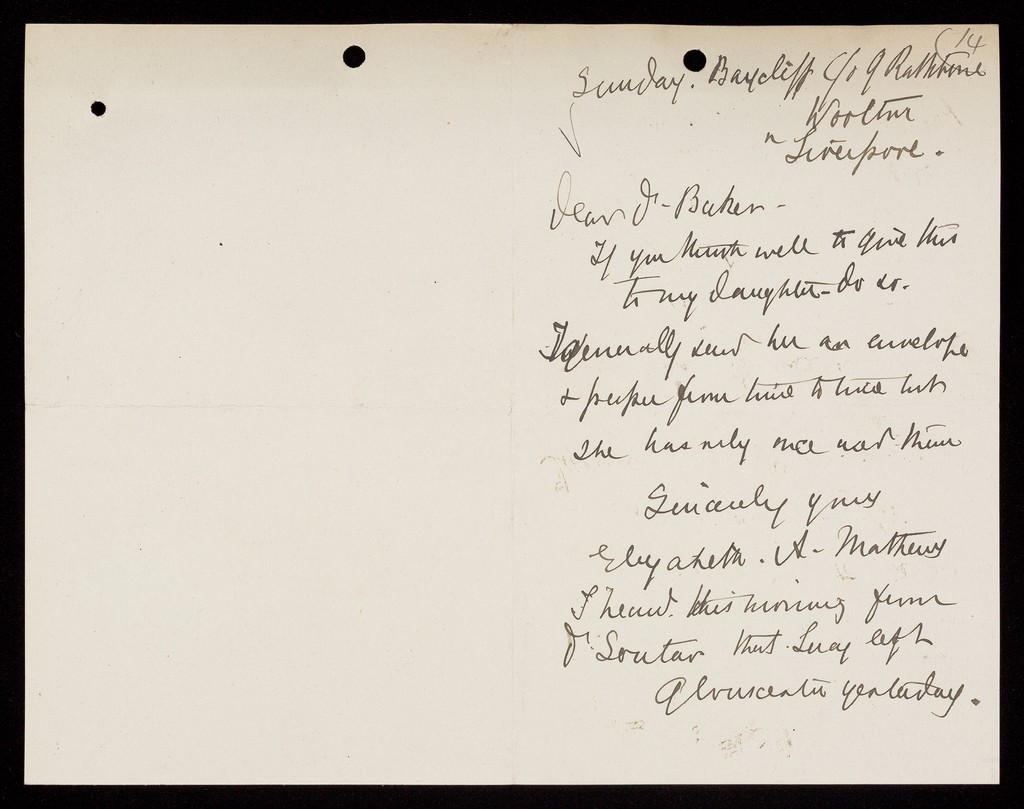 14
Sunday. Baycliff c/o G Rathbone
Woolton
n Liverpool.
Dear Dr. Baker -
If you think well to give this
to my daughter - do so.
I generally send her an envelope
& paper from time to time but
she has only once used them
Sincerely yours
Elizabeth. A. Mathews
I heard this morning from
Dr Soutar that Lucy left
Gloucester yesterday.